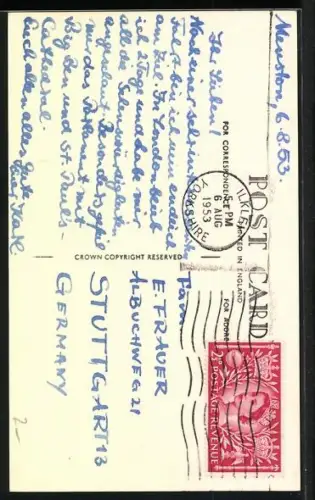 Menston, 6.8.53.
Ihr Lieben!
Nach einer sehr
Fahrt bin ich nun endlich
am Ziel. In London blieb
ich 2 Tage und habe mir
all die Sehenswürdigkeiten
angeschaut. Besonders gefiel
mir das Parlament mit
Big Ben und St. Pauls-
Cathedral.
Euch allen alles Gute
POST CARD
FOR CORRESPONDENCE
PRINTED IN ENGLAND
FOR ADDRESS
CROWN COPYRIGHT RESERVED
ILKLEY
5 PM
6 AUG
1953
YORKSHIRE
Fam.
E. FRAUER
ALBUCHWEG 21
STUTTGART 13
GERMANY
2½D POSTAGE REVENUE
2-